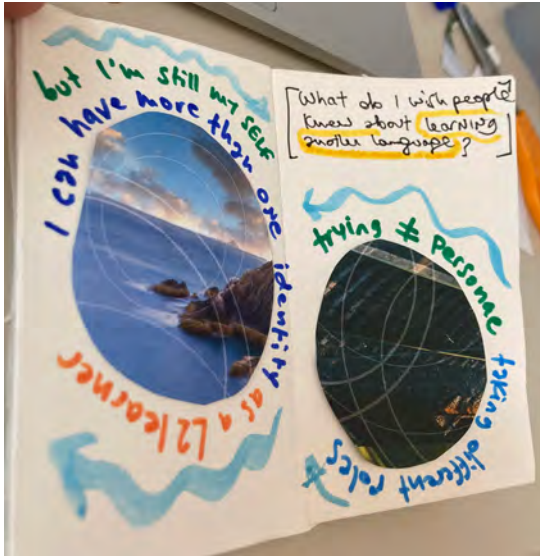 but I'm still my SELF
I can have more than one identity
as a L2 learner
[What do I wish people
knew about learning
another language?]
trying ≠ personae
taking different roles